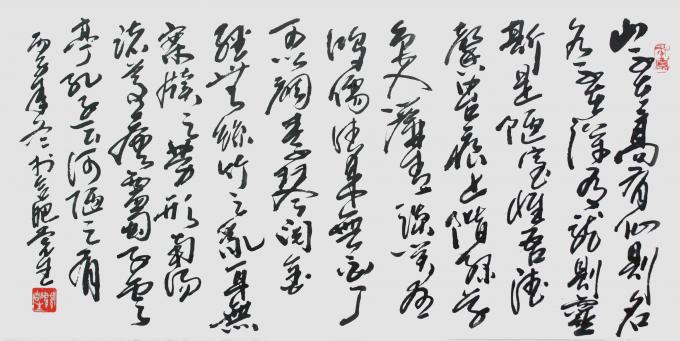 山不在高有仙則名
水不在深有龍則靈
斯是陋室惟吾德
馨苔痕上階綠草
色入簾青談笑有
鴻儒往來無白丁
可以調素琴閱金
經無絲竹之亂耳無
案牘之勞形南陽
諸葛廬西蜀子雲
亭孔子云何陋之有
年冬於合肥